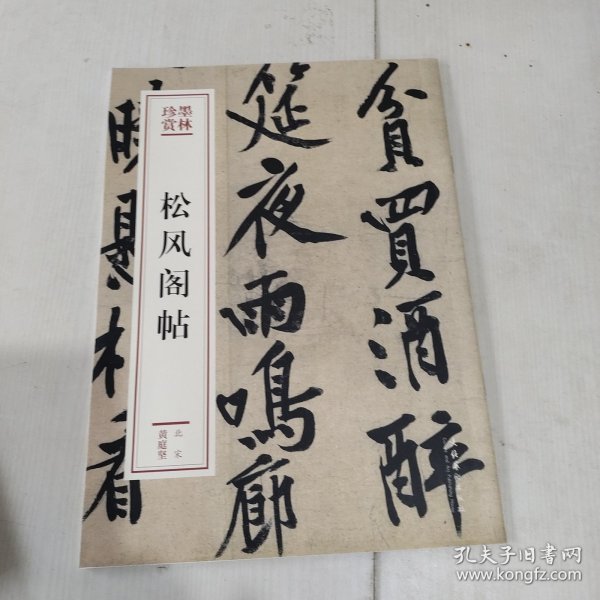 貧買酒醉
筵夜雨鳴廊
曉懸相看
墨林
珍赏
松风阁帖
北宋
黄庭坚
孔夫子旧书网
www.kongfz.com